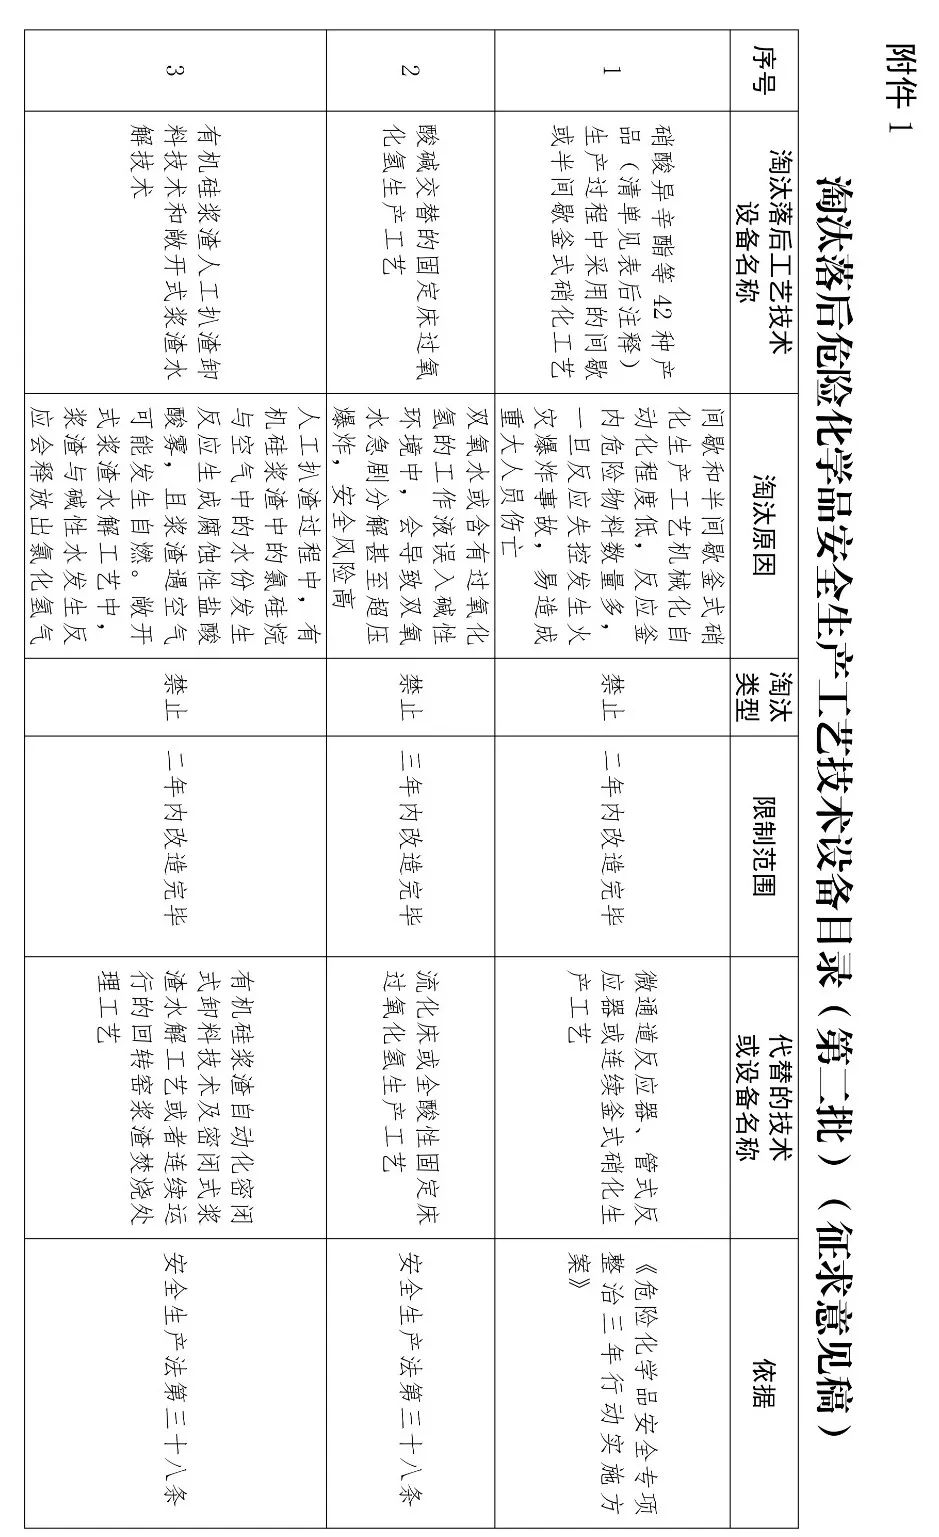 附件 1
淘汰落后危险化学品安全生产工艺技术设备目录（第二批）（征求意见稿）
序号
淘汰落后工艺技术
设备名称
淘汰原因
淘汰
类型
限制范围
代替的技术
或设备名称
依据
1
硝酸异辛酯等 42 种产
品（清单见表后注释）
生产过程中采用的间歇
或半间歇釜式硝化工艺
间歇和半间歇釜式硝
化生产工艺机械化自
动化程度低，反应釜
内危险物料数量多，
一旦反应失控发生火
灾爆炸事故，易造成
重大人员伤亡
禁止
二年内改造完毕
微通道反应器、管式反
应器或连续釜式硝化生
产工艺
《危险化学品安全专项
整治三年行动实施方
案》
2
酸碱交替的固定床过氧
化氢生产工艺
双氧水或含有过氧化
氢的工作液误入碱性
环境中，会导致双氧
水急剧分解甚至超压
爆炸，安全风险高
禁止
三年内改造完毕
流化床或全酸性固定床
过氧化氢生产工艺
安全生产法第三十八条
3
有机硅浆渣人工扒渣卸
料技术和敞开式浆渣水
解技术
人工扒渣过程中，有
机硅浆渣中的氯硅烷
与空气中的水份发生
反应生成腐蚀性盐酸
酸雾，且浆渣遇空气
可能发生自燃。敞开
式浆渣水解工艺中，
浆渣与碱性水发生反
应会释放出氯化氢气
禁止
二年内改造完毕
有机硅浆渣自动化密闭
式卸料技术及密闭式浆
渣水解工艺或者连续运
行的回转窑浆渣焚烧处
理工艺
安全生产法第三十八条